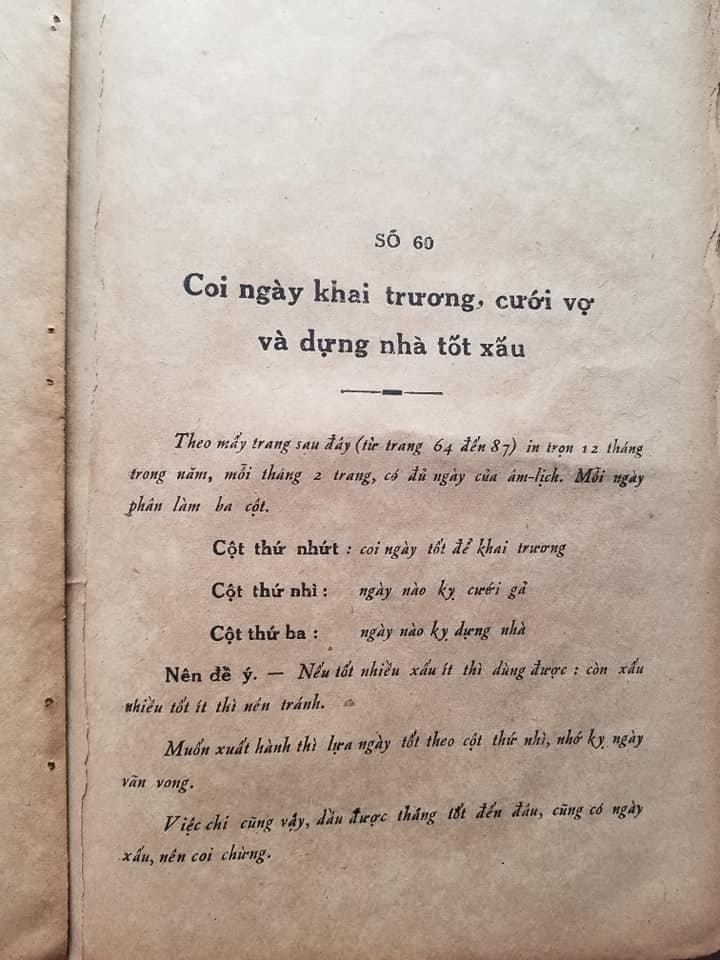 SỐ 60
Coi ngày khai trương, cưới vợ
và dựng nhà tốt xấu
Theo mấy trang sau đây (từ trang 64 đến 87) in trọn 12 tháng
trong năm, mỗi tháng 2 trang, có đủ ngày của âm-lịch. Mỗi ngày
phân làm ba cột.
Cột thứ nhứt : coi ngày tốt để khai trương
Cột thứ nhì : ngày nào kỵ cưới gả
Cột thứ ba : ngày nào kỵ dựng nhà
Nên để ý. — Nếu tốt nhiều xấu ít thì dùng được : còn xấu
nhiều tốt ít thì nên tránh.
Muốn xuất hành thì lựa ngày tốt theo cột thứ nhì, nhớ kỵ ngày
vãn vong.
Việc chi cũng vậy, dầu được tháng tốt đến đâu, cũng có ngày
xấu, nên coi chừng.